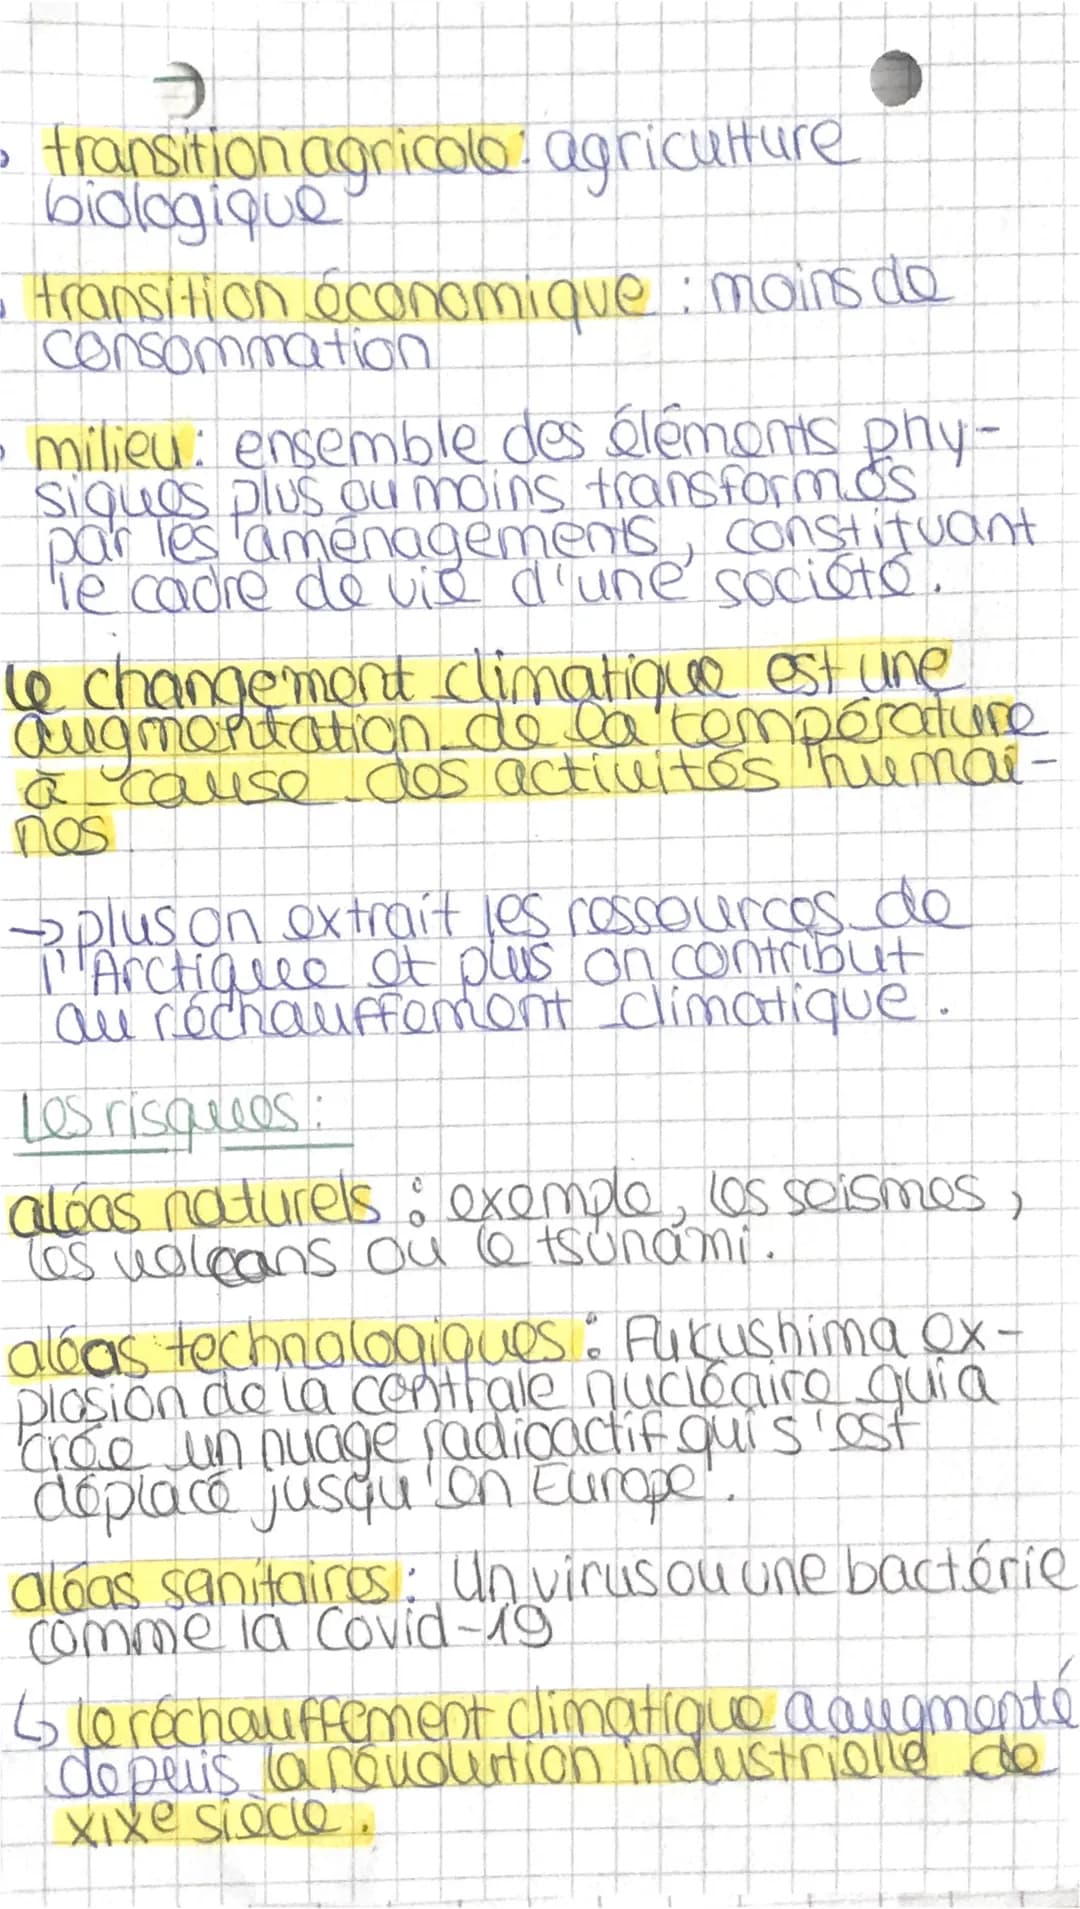 transition agricole : agriculture
biologique
transition économique : moins de
consommation
milieu : ensemble des éléments phy-
siques plus ou moins transformés
par les aménagements, constituant
le cadre de vie d'une société.
le changement climatique est une
augmentation de la température
à cause des activités humai-
nes
→ plus on extrait les ressources de
l'Arctique et plus on contribut
au réchauffement climatique.
Les risques :
aléas naturels : exemple, les seismes,
les volcans ou le tsunami.
aléas technologiques : Fukushima ex-
plosion de la centrale nucléaire qui a
crée un nuage radioactif qui s'est
déplacé jusqu'en Europe.
aléas sanitaires : Un virus ou une bactérie
comme la Covid-19
↳ le réchauffement climatique a augmenté
depuis la révoulution industrielle de
XIXe siècle.